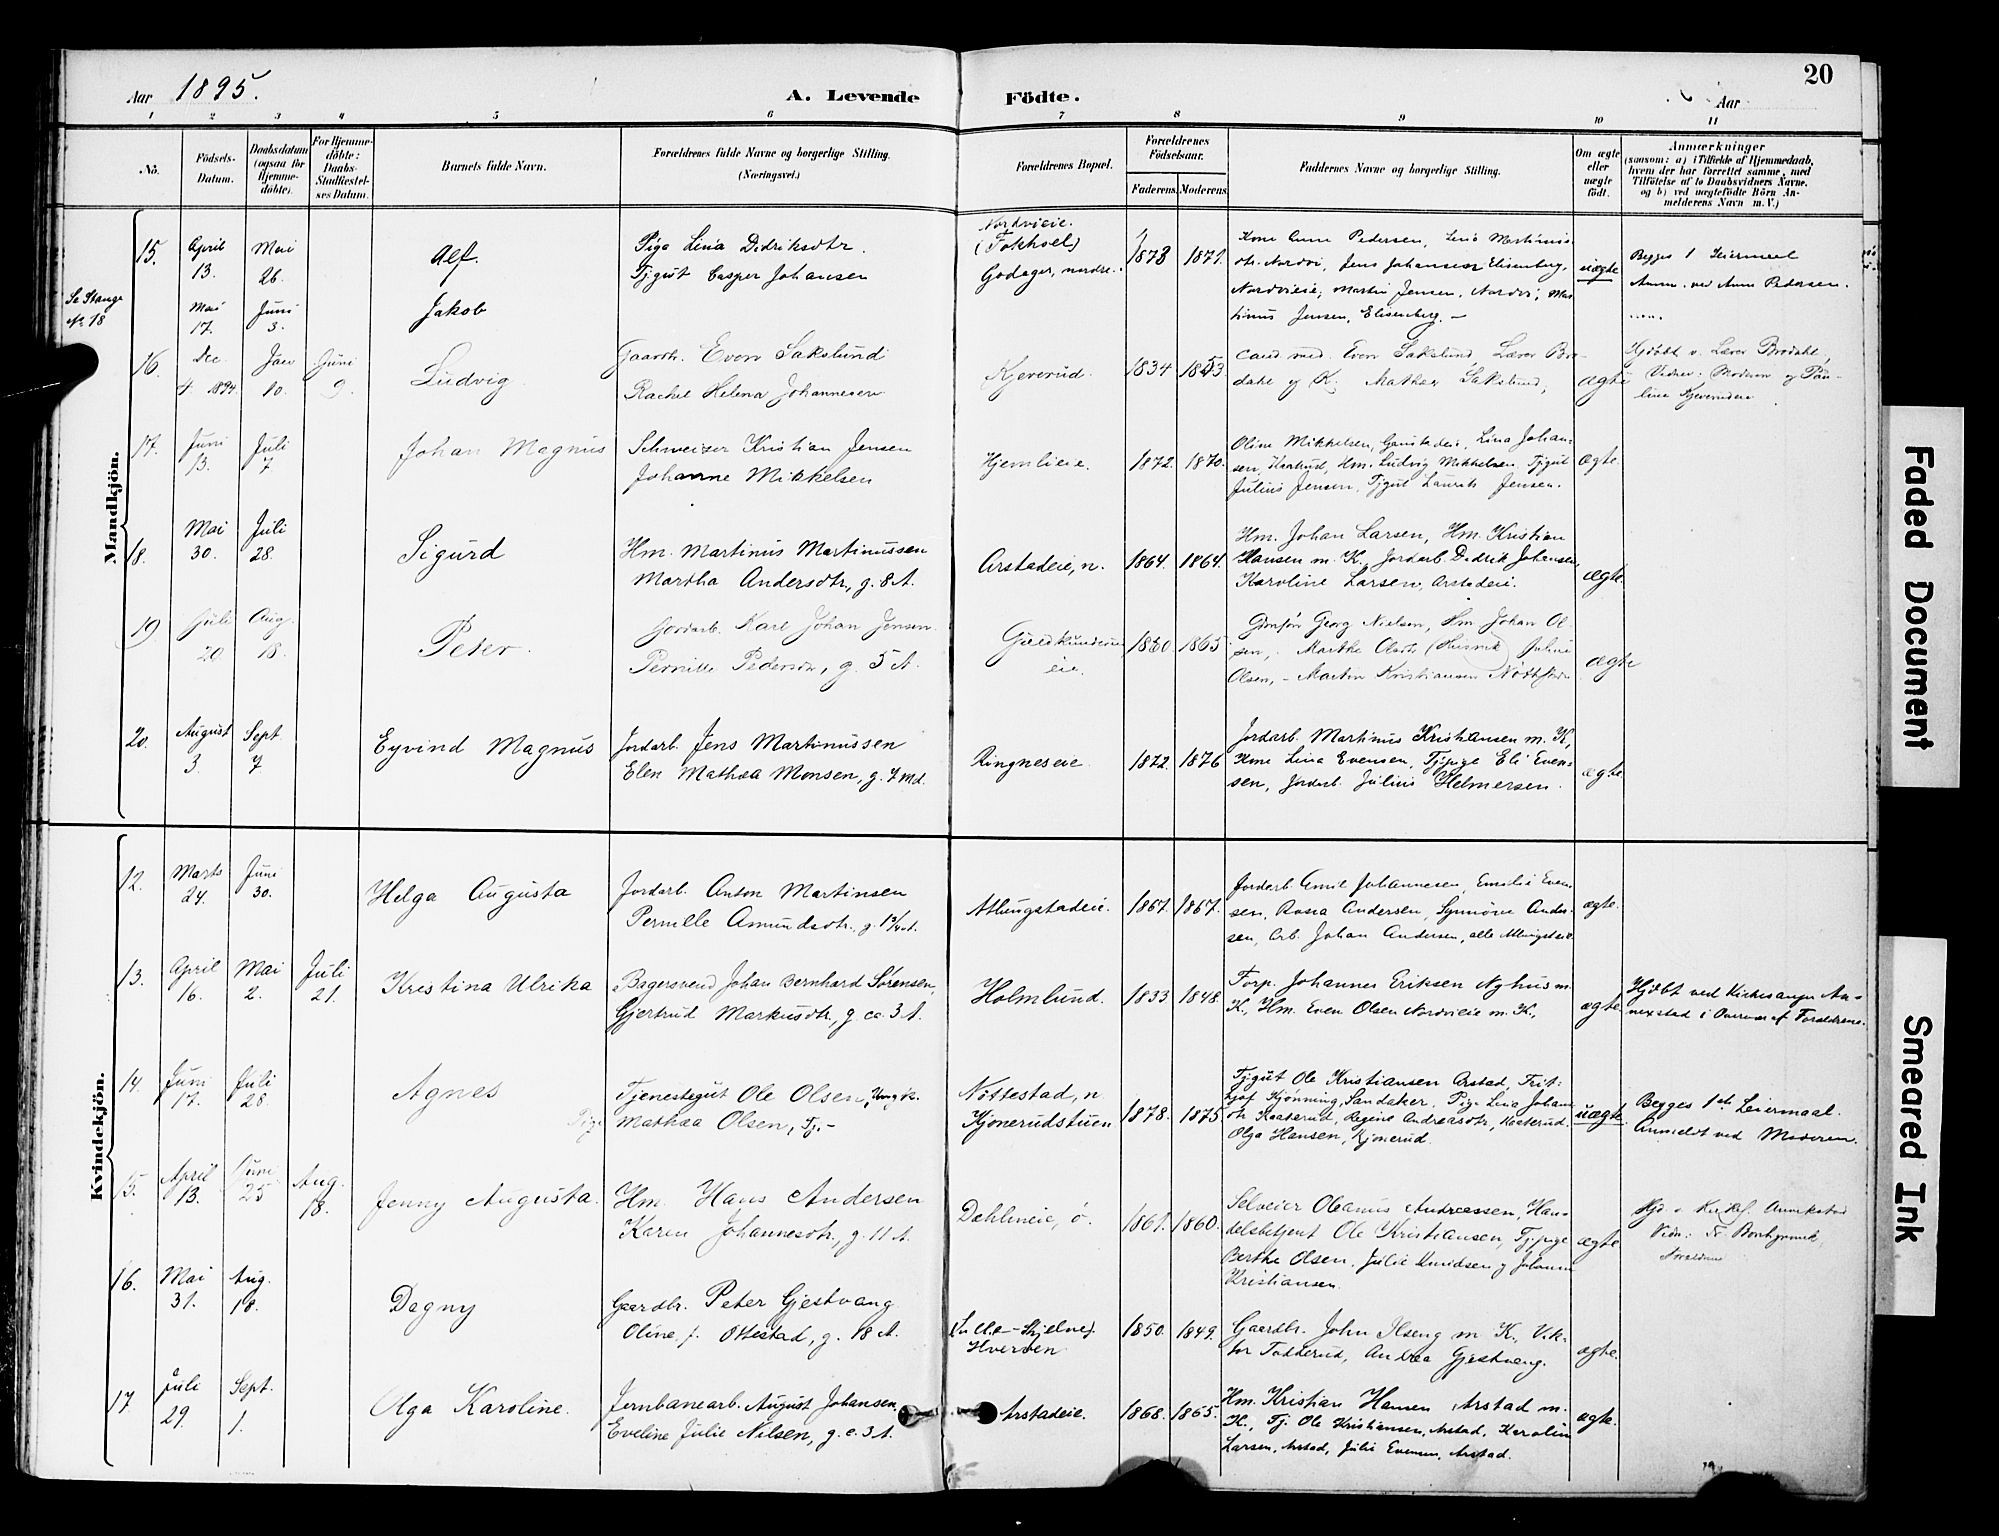 20
Aar 1895.
A. Levende Födte.
Aar
1 2 3 4 5 6 7 8 9 10 11
No.
Födsels-Datum.
Daabsdatum (ogsaa for Hjemmedöbte).
For Hjemmedöbte: Daabs-Stadfæstelses Datum.
Barnets fulde Navn.
Forældrenes fulde Navne og borgerlige Stilling.
(Næringsvei.)
Forældrenes Bopæl.
Forældrenes Födselsaar.
Faderens. Moderens.
Faddernes Navne og borgerlige Stilling.
Om ægte eller uægte födt.
Anmærkninger
(saasom: a) i Tilfælde af Hjemmedaab,
hvem der har forrettet samme, med
Tilföielse af to Daabsvidners Navne,
og b) ved uægtefödte Börn An-
melderens Navn m. V.)
Mandkjön.
Se Stange
No 18
15. April 13. Mai 26. Alf. Pige Lina Didriksdtr.
Tjgut Casper Johansen
Nordvieie.
(Tokhoel)
Godager, nordre.
1873 1871.
Kone Anne Pedersen, Lina Martinus-
dtr. Nordvi, Jens Johansen Elisenberg,
Nordvieie, Martin Jensen, Nordvi, Mar-
tinus Jensen, Elisenberg. —
uægte
Begges 1 Leiermaal
Anm. ved Anne Pedersen.
Mai 17. Juni 3. Jakob
16. Dec. 4. 1894 Jan 10. Juni 9. Ludvig. Gaardbr. Even Sakslund
Rachel Helena Johannesen
Kjeverud. 1834 1853.
Cand. med. Even Sakslund, Lærer Bro-
dahl og K., Mathea Sakslund,
ægte
Hjdöbt v. Lærer Brodahl,
Vidner: Moderen og Pau-
line Kjeverudeie
17. Juni 13. Juli 7. Johan Magnus Schweizer Kristian Jensen
Johanne Mikkelsen
Hjemlieie. 1872. 1870.
Oline Mikkelsen, Lina Johan-
sen, Hm. Ludvig Mikkelsen, Tjgut
Julius Jensen, Tjgut Laurits Jensen.
ægte.
18. Mai 30. Juli 28. Sigurd Hm. Martinus Martinussen
Martha Andersdtr., g. 8 A.
Arstadeie, n. 1864. 1864.
Hm. Johan Larsen, Hm. Kristian
Hansen m. K., Jordarb. Didrik Johansen,
Karoline Larsen, Arstadeie.
ægte.
19. Juli 20. Aug. 18. Peter. Jordarb. Karl Johan Jensen
Pernille Pedersdtr., g. 5 A.
eie. 1860. 1865
Georg Nielsen, Hm Johan Ol-
sen, Marthe Olsdtr. Juline
Olsen, — Martin Kristiansen
ægte
20. August 3. Sept. 7 Eyvind Magnus Jordarb. Jens Martinussen
Elen Mathea Monsen, g. 7 Md.
Ringneseie. 1872. 1876
Jordarb. Martinus Kristiansen m. K.,
Kone Lina Evensen, Tjpige Eli Even-
sen, Jordarb. Julius Helmersen.
ægte
Kvindekjön.
12. Marts 24. Juni 30. Helga Augusta Jordarb. Anton Martinsen
Pernille Amundsdtr., g. 1 3/4 A.
Atlungstadeie. 1867. 1867.
Jordarb. Emil Johannesen, Emilie Even-
sen, Rosa Andersen, Synnöve Ander-
sen, Arb. Johan Andersen, alle Atlungstadeie
ægte.
13. April 16. Mai 2. Juli 21. Kristina Ulrika Bagersvend Johan Bernhard Sørensen,
Gjertrud Markusdtr., g. ca. 3 A.
Holmlund. 1833. 1848.
Torp. Johannes Eriksen Nyhus m.
K., Hm. Even Olsen Nordvieie m. K.,
ægte.
Hjdöbt ved Kirkesanger An-
nexstad i Overvær af Forældrene.
14. Juni 17. Juli 28. Agnes Tjenestegut Ole Olsen, Ungk.
Pige Mathea Olsen, Tj. —
Nöttestad, n.
Kjonerudstuen
1878. 1875.
Tjgut Ole Kristiansen Arstad, Frit-
hjof Kjönning, Sandaker, Pige Lina Johans-
dtr. Kaaterud, Regine Andreasdtr., Kaaterud.
Olga Hansen, Kjonerud.
uægte
Begges 1ste Leiermaal.
Anmeldt ved Moderen.
15. April 13. Juni 25 Aug. 18. Jenny Augusta. Hm. Hans Andersen
Karen Johannesdtr., g. 11 A.
Dahlneie, ö. 1861. 1860.
Selveier Oleanus Andreassen, Han-
delsbetjent Ole Kristiansen, Tjpige
Berthe Olsen, Julie Knudsen og Johanne
Kristiansen.
ægte
Hjd. v. Annekstad
Vidn:
16. Mai 31. Aug. 18. Dagny Gaardbr. Peter Gjestvang
Oline, f. Ottestad, g. 18 A.
Hverven 1850. 1849.
Gaardbr. John Ilseng m K., Vik-
tor Todderud, Andrea Gjestvang.
ægte.
17 Juli 29. Sept. 1. Olga Karoline. Jernbanearb. August Johansen,
Eveline Julie Nilsen, g. c. 3 A.
Arstadeie. 1868. 1865.
Hm. Kristian Hansen Arstad m.
K., Tj. Ole Kristiansen, Arstad, Karolin
Larsen, Arstad, Julie Evensen, Arstad.
ægte.
Faded Document
Smeared Ink